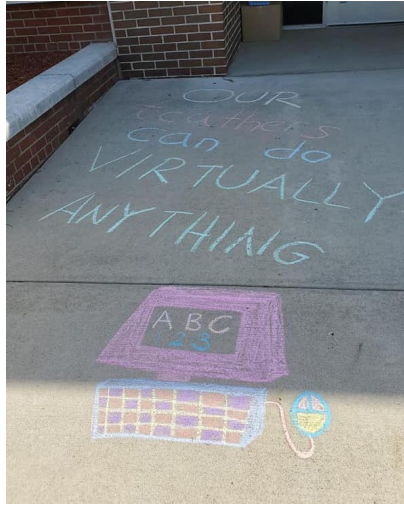 OUR
teachers
can do
VIRTUALLY
ANYTHING
ABC
123